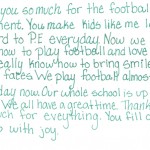 you so much for the football
ment. You make kids like me lo
rd to P.E everyday Now we
how to play football and love
eally know how to bring smile
faces We play football almos
day now Our whole school is up
We all have a great time. Thank
uch for everything. You fill o
p with joy.